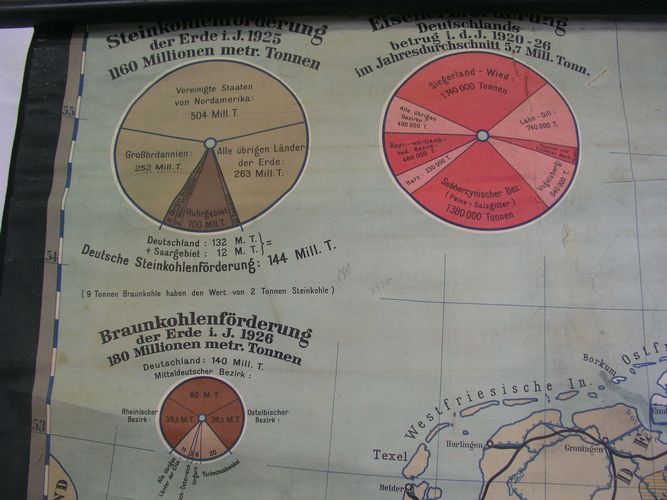 Steinkohlenförderung
der Erde i. J. 1925
1160 Millionen metr. Tonnen
Vereinigte Staaten
von Nordamerika:
504 Mill. T.
Großbritannien:
252 Mill. T.
Alle übrigen Länder
der Erde:
263 Mill. T.
Ruhrgebiet
100 Mill. T.
Deutschland : 132 M. T.
+ Saargebiet : 12 M. T. } =
Deutsche Steinkohlenförderung: 144 Mill. T.
( 9 Tonnen Braunkohle haben den Wert von 2 Tonnen Steinkohle )
Deutschlands
betrug i. d. J. 1920-26
im Jahresdurchschnitt 5,7 Mill. Tonn.
Siegerland - Wied :
1740 000 Tonnen
Alle übrigen
Bezirke :
400 000 T.
Lahn - Dill :
740 000 T.
Bayr.- württemb.-
bad. Bezirk :
460 000 T.
Harz : 230 000 T.
Vogelsberg:
540 000 T.
Subherzynischer Bez:
(Peine - Salzgitter)
1380 000 Tonnen
Braunkohlenförderung
der Erde i. J. 1926
180 Millionen metr. Tonnen
Deutschland : 140 Mill. T.
Mitteldeutscher Bezirk :
60 M. T.
Rheinischer
Bezirk :
39,5 M.T.
39,5 M.T.
Ostelbischer
Bezirk :
11
3
6
20
Alle übrigen
Länder der Erde:
Ungarn
Tschechoslowakei
55
54
53
Westfriesische In.
Borkum
Ostf
Texel
Harlingen
Groningen
Helder
Em
D E
ND